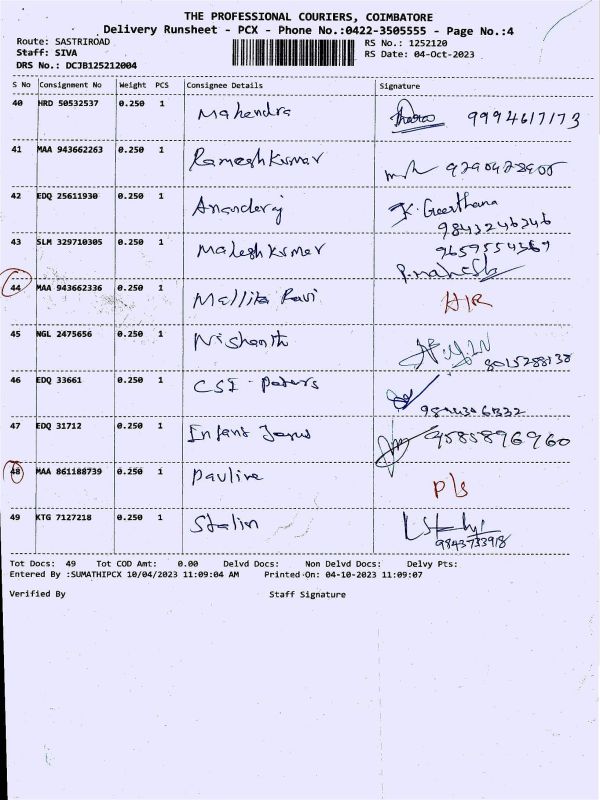 THE PROFESSIONAL COURIERS, COIMBATORE
Delivery Runsheet - PCX - Phone No.:0422-3505555 - Page No.:4
Route: SASTRIROAD RS No.: 1252120
Staff: SIVA RS Date: 04-Oct-2023
DRS No.: DCJB125212004
S No Consignment No Weight PCS Consignee Details Signature
40 HRD 50532537 0.250 1 Mahendra 9994617173
41 MAA 943662263 0.250 1 Rameshkumar
42 EDQ 25611930 0.250 1 Ananderaj K. Geerthana
9843246346
43 SLM 329710305 0.250 1 Maheshkumar 9659554369
P. mahesh
44 MAA 943662336 0.250 1 Mallika Ravi
45 NGL 2475656 0.250 1 Nishanth
8015288138
46 EDQ 33661 0.250 1 CSI - Paters
47 EDQ 31712 0.250 1 Infant Janus 9585896960
48 MAA 861188739 0.250 1 Pauline P/s
49 KTG 7127218 0.250 1 Stalin
9843733918
Tot Docs: 49 Tot COD Amt: 0.00 Delvd Docs: Non Delvd Docs: Delvy Pts:
Entered By :SUMATHIPCX 10/04/2023 11:09:04 AM Printed On: 04-10-2023 11:09:07
Verified By Staff Signature